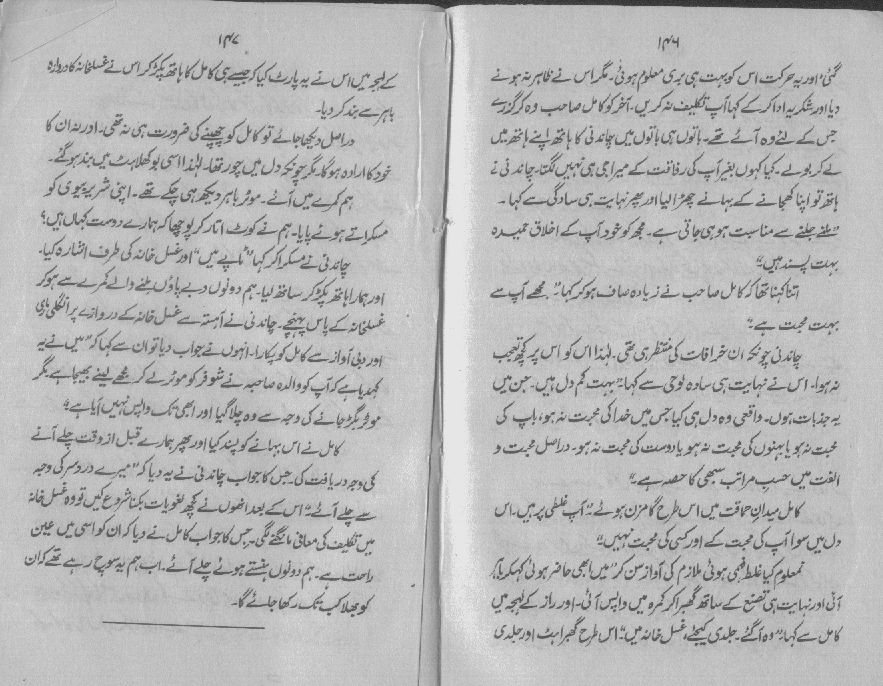 ۱۴۶
گئی اور یہ حرکت اس کو بہت ہی بری معلوم ہوئی۔ مگر اس نے ظاہر نہ ہونے
دیا اور شکریہ ادا کر کے کہا آپ تکلیف نہ کریں۔ آخر کو کامل صاحب وہ کر گزرے
جس کے لئے وہ آئے تھے۔ باتوں ہی باتوں میں چاندنی کا ہاتھ اپنے ہاتھ میں
لے کر بولے۔ کیا کہوں بغیر آپ کی رفاقت کے میرا جی ہی نہیں لگتا۔ چاندنی نے
ہاتھ تو اپنا کھجانے کے بہانے چھڑا لیا اور پھر نہایت ہی سادگی سے کہا۔
"ملنے جلنے سے مناسبت ہو ہی جاتی ہے۔ مجھ کو خود آپ کے اخلاق حمیدہ
بہت پسند ہیں"
اتنا کہنا تھا کہ کامل صاحب نے زیادہ صاف ہو کر کہا۔ "مجھے آپ سے
بہت محبت ہے۔"
چاندنی چونکہ ان خرافات کی منتظر ہی تھی۔ لہٰذا اس کو اس پر کچھ تعجب
نہ ہوا۔ اس نے نہایت ہی سادہ لوحی سے کہا۔ "بہت کم دل ہیں۔ جن میں
یہ جذبات ہوں۔ واقعی وہ دل ہی کیا جس میں خدا کی محبت نہ ہو، باپ کی
محبت نہ ہو یا بہنوں کی محبت نہ ہو یا دوست کی محبت نہ ہو۔ دراصل محبت و
الفت میں حسب مراتب سبھی کا حصہ ہے۔"
کامل میدان حماقت میں اس طرح گامزن ہوئے۔ "آپ غلطی پر ہیں۔ اس
دل میں سوا آپ کی محبت کے اور کسی کی محبت نہیں"
نمعلوم کیا غلط فہمی ہوئی ملازم کی آواز سن کر "میں ابھی حاضر ہوئی" کہہ کر باہر
آئی اور نہایت ہی تصنع کے ساتھ گھبرا کر کمرہ میں واپس آئی۔ اور راز کے لہجہ میں
کامل سے کہا۔ "وہ آ گئے۔ جلدی کیجئے، غسل خانہ میں" اس طرح گھبراہٹ اور جلدی
۱۴۷
کے لہجہ میں اس نے یہ پارٹ کیا کہ جیسے ہی کامل کا ہاتھ پکڑ کر اس نے غسلخانہ کا دروازہ
باہر سے بند کر دیا۔
دراصل دیکھا جائے تو کامل کو چھپنے کی ضرورت ہی نہ تھی۔ اور نہ ان کا
خود کا ارادہ ہوگا۔ مگر چونکہ دل میں چور تھا۔ لہٰذا اسی بوکھلاہٹ میں بند ہو گئے۔
ہم کمرے میں آئے۔ موٹر باہر دیکھ ہی چکے تھے۔ اپنی شریر بیوی کو
مسکراتے ہوئے پایا۔ ہم نے کوٹ اتار کر پوچھا کہ ہمارے دوست کہاں ہیں؟
چاندنی نے مسکرا کر کہا "ٹاپے میں" اور غسل خانہ کی طرف اشارہ کیا۔
اور ہمارا ہاتھ پکڑ کر ساتھ لیا۔ ہم دونوں دبے پاؤں ملنے والے کمرے سے ہو کر
غسلخانہ کے پاس پہنچے۔ چاندنی نے آہستہ سے غسل خانہ کے دروازے پر انگلی ماری
اور دبی آواز سے کامل کو پکارا۔ انہوں نے جواب دیا تو ان سے کہا کہ "میں نے یہ
کہدیا ہے کہ آپ کو والدہ صاحبہ نے شوفر کو موٹر لے کر مجھے لینے بھیجا ہے۔ مگر
موٹر بگڑ جانے کی وجہ سے وہ چلا گیا اور ابھی تک واپس نہیں آیا ہے"
کامل نے اس بہانے کو پسند کیا اور پھر ہمارے قبل از وقت چلے آنے
کی وجہ دریافت کی۔ جس کا جواب چاندنی نے یہ دیا کہ "میرے درد سر کی وجہ
سے چلے آئے۔" اس کے بعد انھوں نے کچھ لغویات بکنا شروع کیں تو وہ غسل خانہ
میں تکلیف کی معافی مانگنے لگی۔ جس کا جواب کامل نے دیا کہ ان کو اسی میں عین
راحت ہے۔ ہم دونوں ہنستے ہوئے چلے آئے۔ اب ہم یہ سوچ رہے تھے کہ ان
کو بھلا کب تک رکھا جائے گا۔